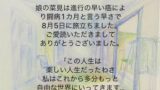 娘の菜見は進行の早い癌により
闘病1カ月と言う早さで
8月5日に旅立ちました。
ご愛読いただきまして
ありがとうございました。
「この人生は
楽しい人生だったわさ
私はこれから多分もっと
自由な世界にいってきます。